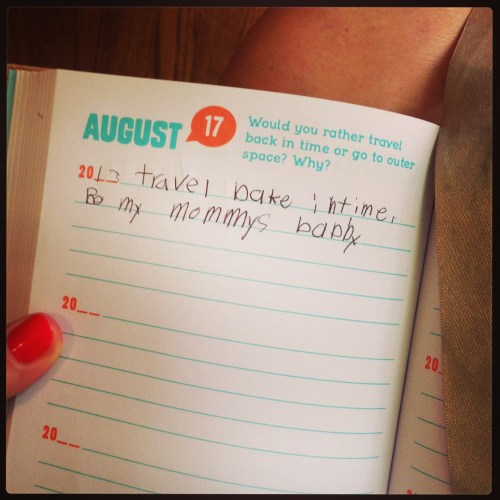 AUGUST 17
Would you rather travel
back in time or go to outer
space? Why?
2013 travel bake intime.
Bo my mommys babby
20__
20__
20_
20